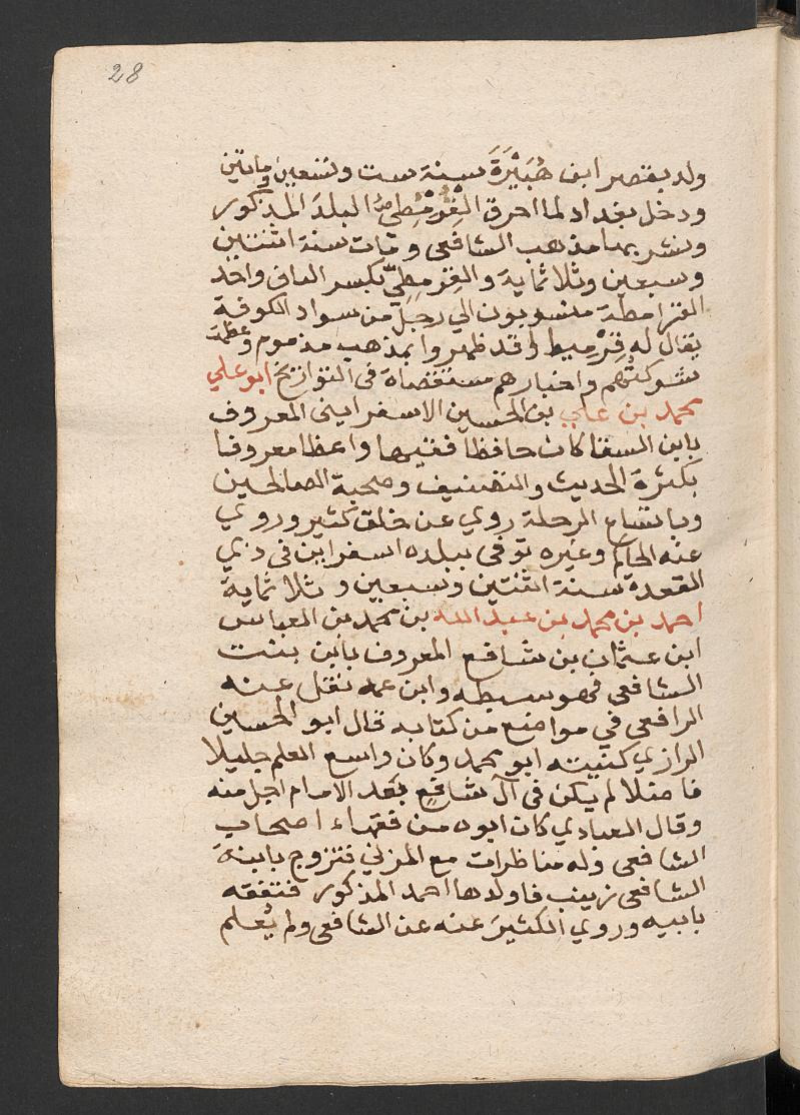 28
ولد بقصر ابن هُبَيْرَةَ سنة ست وتسعين وماتين
ودخل بغداد لما احرق القرمطي البلد المذكور
ونشر بها مذهب الشافعي ومات سنة اثنتين
وسبعين وثلاثماية والقِرْمِطِيّ بكسر القاف واحد
القرامطة منسوبون الي رجل من سواد الكوفة
يقال له قِرْمِيط وقد ظهروا بمذهب مذموم وعظمة
شوكتهم واخبارهم مستقصاة في التواريخ ابو علي
محمد بن علي بن الحسين الاسفرايني المعروف
بابن السقا كان حافظا فقيها واعظا معروفا
بكثرة الحديث والتصنيف وصحبة الصالحين
وباتساع الرحلة روي عن خلق كثير وروي
عنه الحاكم وغيره توفي ببلده اسفراين في ذي
القعدة سنة اثنتين وسبعين وثلاثماية
احمد بن محمد بن عبد الله بن محمد بن العباس
ابن عثمان بن شافع المعروف بابن بنت
الشافعي فهو سبطه وابن عمه نقل عنه
الرافعي في مواضع من كتابه قال ابو الحسين
الرازي كنيته ابو محمد وكان واسع العلم جليلا
فاضلا لم يكن في آل شافع بعد الامام اجل منه
وقال العبادي كان ابوه من فقهاء اصحاب
الشافعي وله مناظرات مع المزني فتزوج بابنة
الشافعي زينب فاولدها احمد المذكور فتفقه
بابيه وروي الكثيرَ عنه عن الشافعي ولم يُعلم